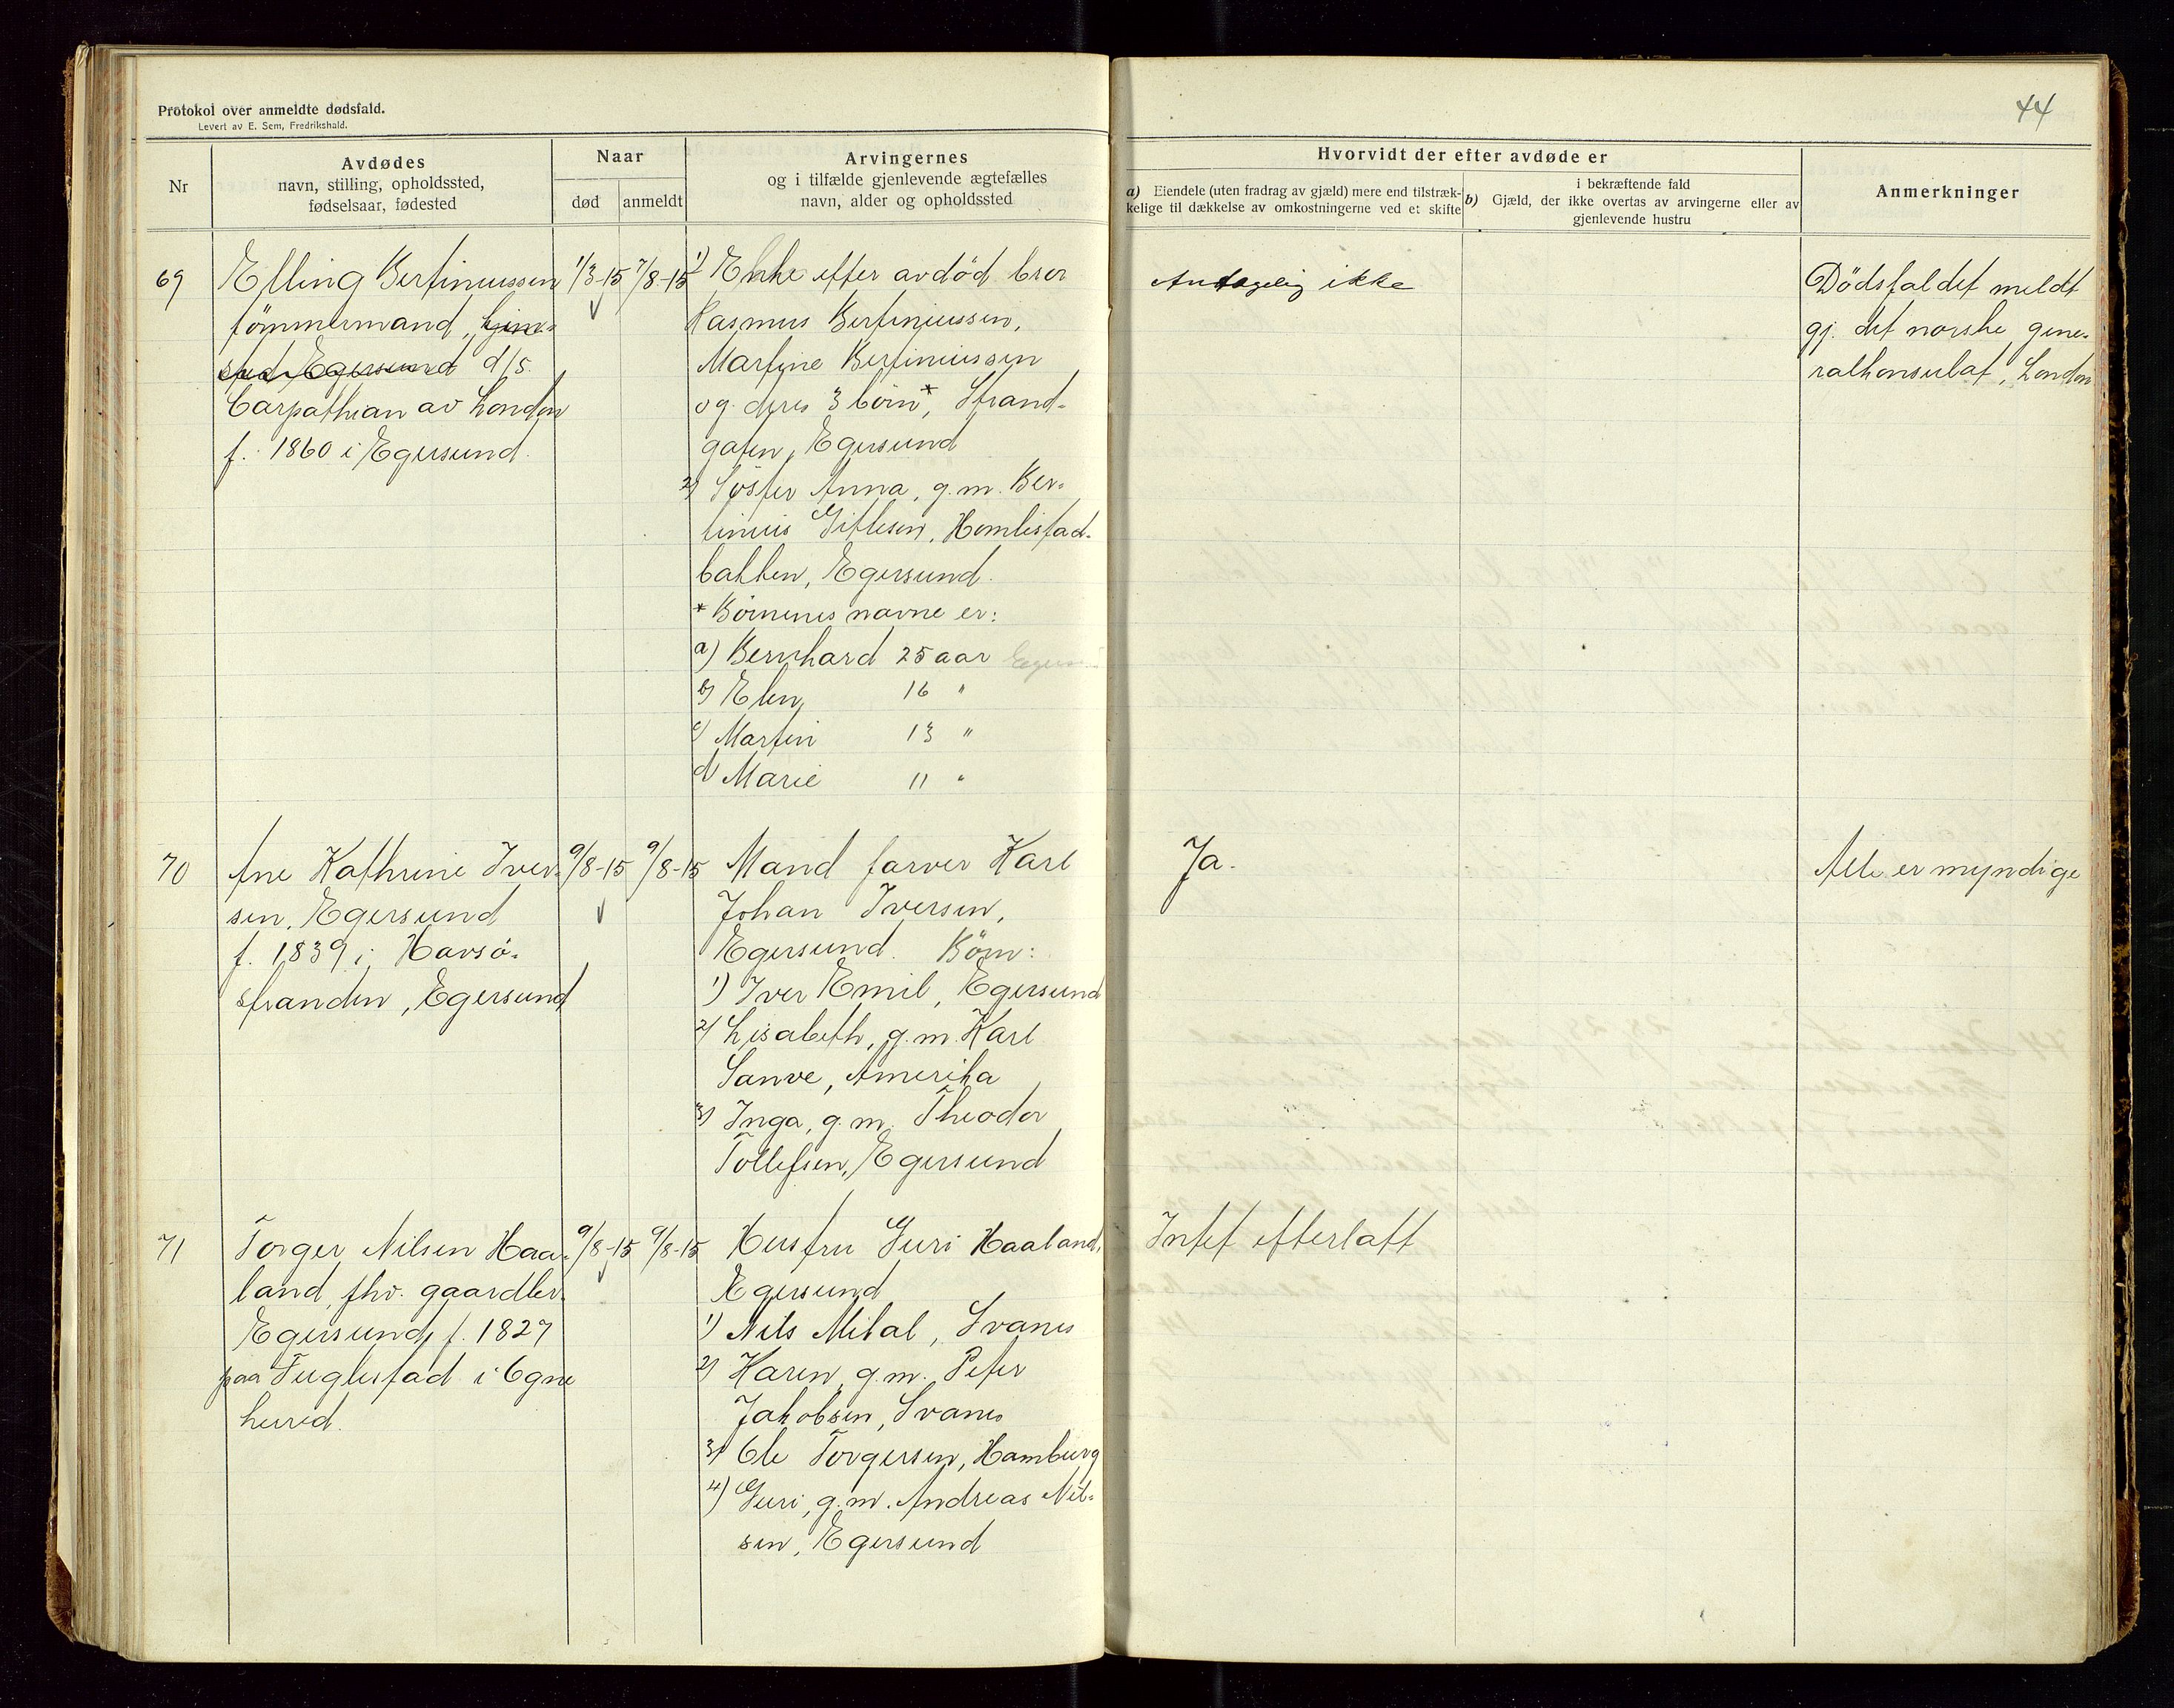 Protokol over anmeldte dødsfald.
Levert av E. Sem, Fredrikshald.
44
Nr
Avdødes
navn, stilling, opholdssted,
fødselsaar, fødested
Naar
død
anmeldt
Arvingernes
og i tilfælde gjenlevende ægtefælles
navn, alder og opholdssted
Hvorvidt der efter avdøde er
a) Eiendele (uten fradrag av gjæld) mere end tilstræk-
kelige til dækkelse av omkostningerne ved et skifte
i bekræftende fald
b) Gjæld, der ikke overtas av arvingerne eller av
gjenlevende hustru
Anmerkninger
69
Elling Bertiniussen
tömmermand, hjem-
sted Egersund d/s.
Carpathian av London
f. 1860 i Egersund.
1/3-15
7/8-15
1) Enke efter avdöd bror
Rasmus Bertiniussen,
Martine Bertiniussen
og deres 3 börn*, Strand-
gaten, Egersund
2) Söster Anna, g.m. Ber-
tinius Gitlesen, Homlestad-
bakken, Egersund.
* Börnenes navne er:
a) Bernhard 25 aar
b) Elen, 16 "
c) Martin 13 "
d) Marie 11 "
Antagelig ikke
Dödsfaldet meldt
gj. det norske gene-
ralkonsulat, London
70
Ane Kathrine Iver-
sen, Egersund
f. 1839 i Havsö-
stranden, Egersund
9/8-15
9/8-15
Mand farver Karl
Johan Iversen,
Egersund. Börn:
1) Iver Emil, Egersund
2) Lisabeth, g.m. Karl
Sanve, Amerika
3) Inga, g.m. Theodor
Tollefsen, Egersund
Ja.
Alle er myndige
71
Torger Nilsen Haa-
land, fhv. gaardbr.
Egersund, f. 1827
paa Fuglestad i Ogne
herred.
9/8-15
9/8-15
Hustru Guri Haaland,
Egersund
1) Nils Mital, Svanes
2) Karen, g.m. Peter
Jakobsen, Svanes
3) Ole Torgersen, Hamburg
4) Guri, g.m. Andreas Nil-
sen, Egersund
Intet efterlatt